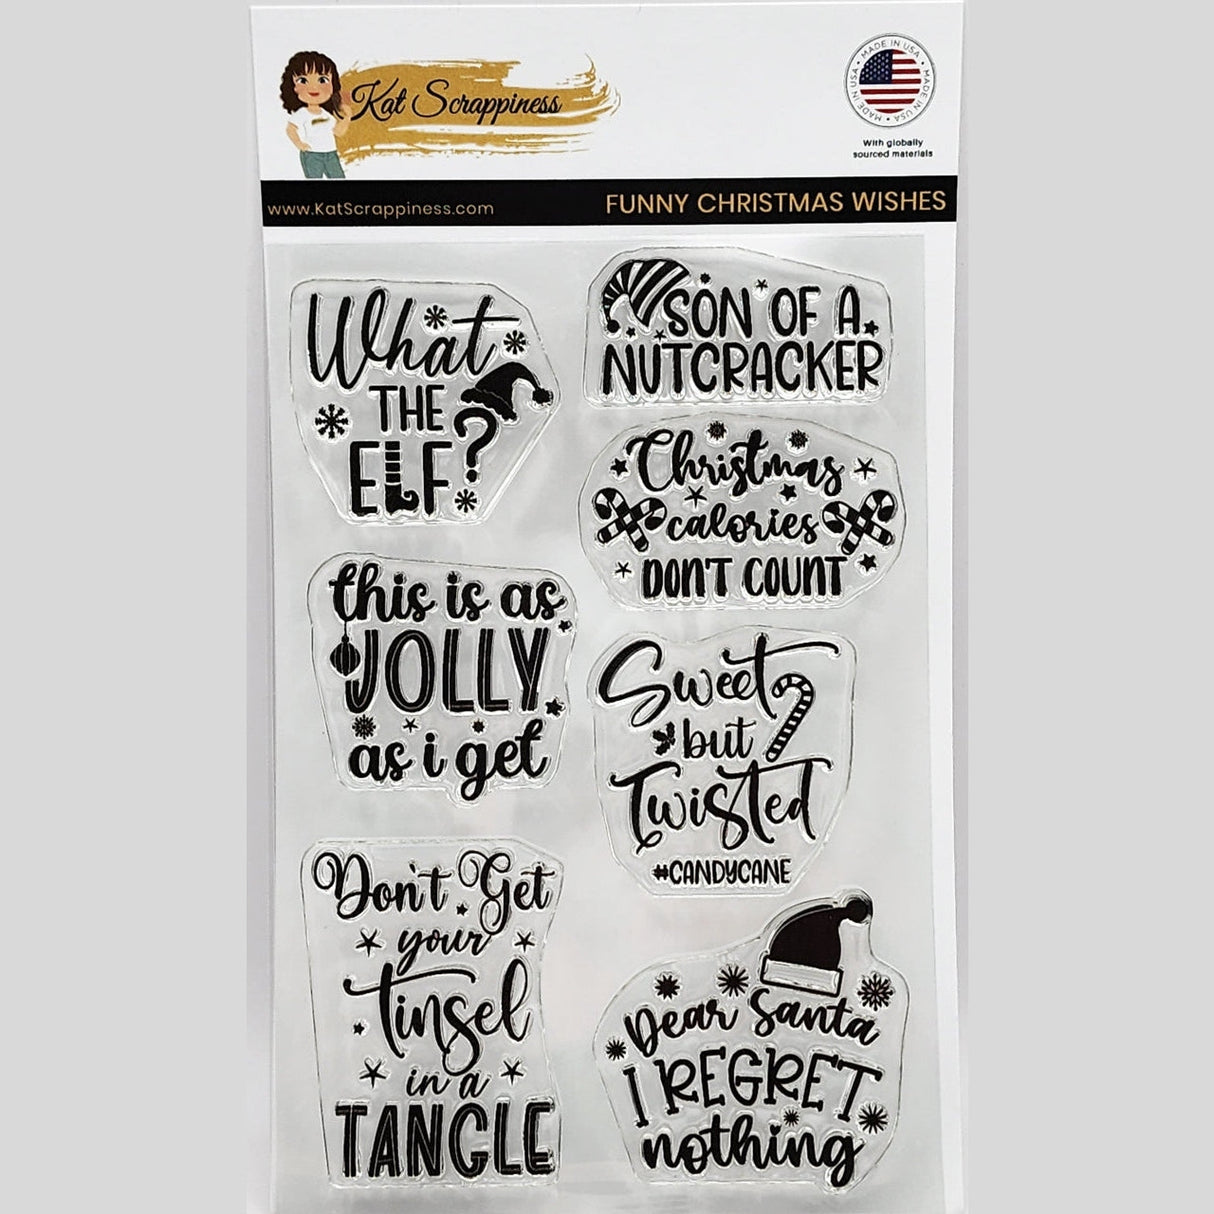 Kat Scrappiness
MADE IN USA • MADE IN USA • MADE IN USA •
With globally
sourced materials
www.KatScrappiness.com
FUNNY CHRISTMAS WISHES
What
THE
ELF?
SON OF A
NUTCRACKER
Christmas
calories
DON'T COUNT
this is as
JOLLY
as i get
Sweet
but
Twisted
#CANDYCANE
Don't Get
your
Tinsel
in a
TANGLE
Dear Santa
I REGRET
nothing